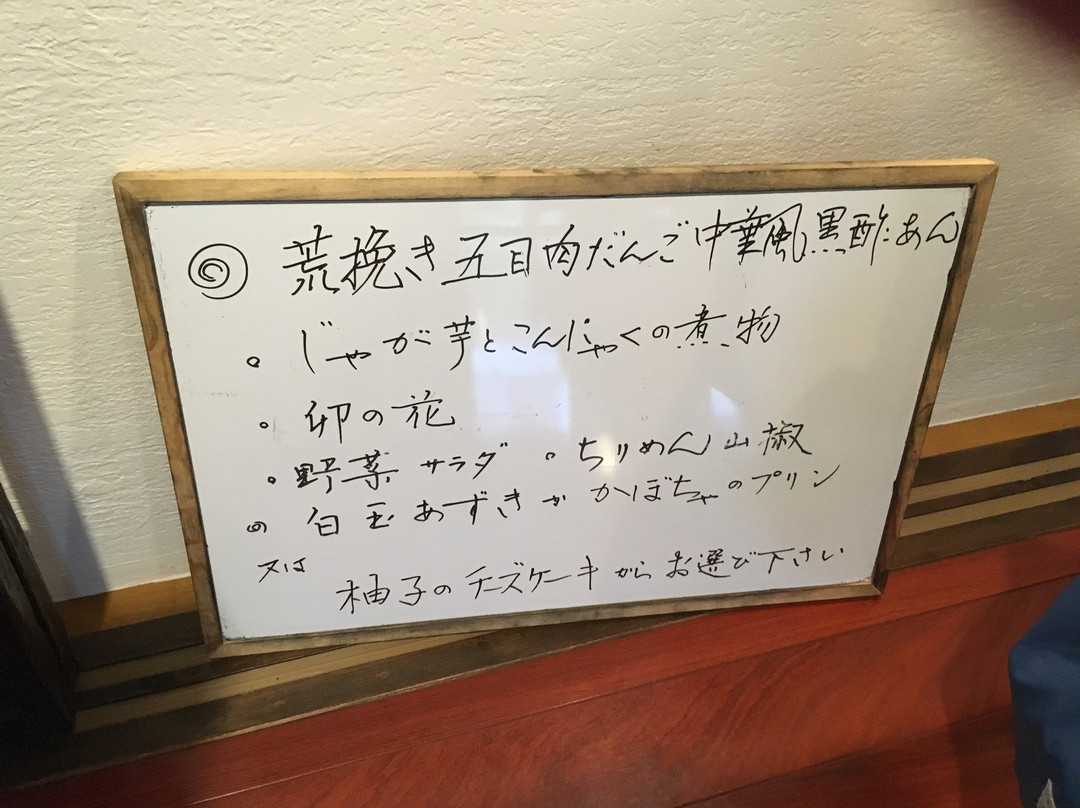 ◎ 荒挽き五目肉だんご中華風黒酢あん
。じゃが芋とこんにゃくの煮物
。卯の花
。野菜サラダ 。ちりめん山椒
◎ 白玉あずきかかぼちゃのプリン
又は
柚子のチーズケーキからお選び下さい